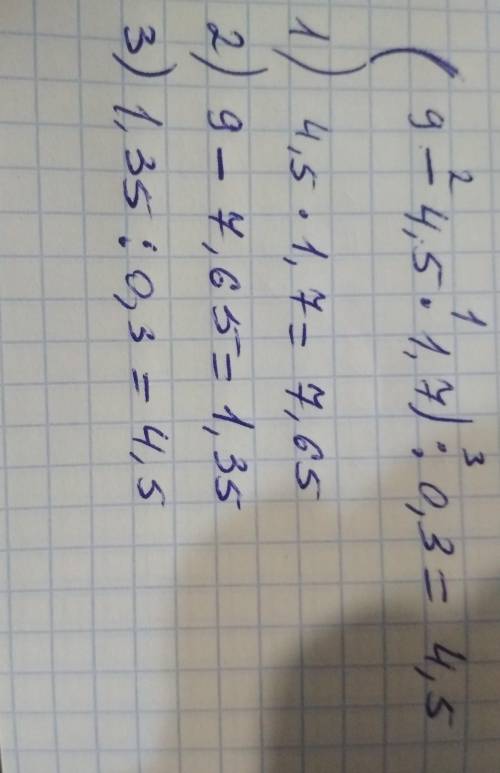 (9 - 4,5 · 1,7) : 0,3 = 4,5
2 1 3
1) 4,5 · 1,7 = 7,65
2) 9 - 7,65 = 1,35
3) 1,35 : 0,3 = 4,5